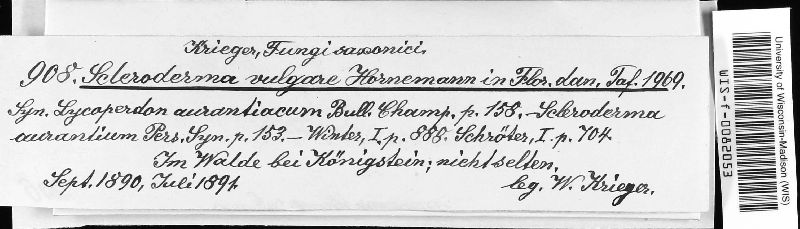 Krieger, Fungi saxonici.
908. Scleroderma vulgare Hornemann in Flor. dan. Taf. 1969.
Syn. Lycoperdon aurantiacum Bull. Champ. p. 158. – Scleroderma
aurantium Pers. Syn. p. 153. – Winter, I. p. 888. Schröter, I. p. 704.
Im Walde bei Königstein; nicht selten.
Sept. 1890, Juli 1891. leg. W. Krieger.
University of Wisconsin-Madison (WIS)
WIS-f-0082053